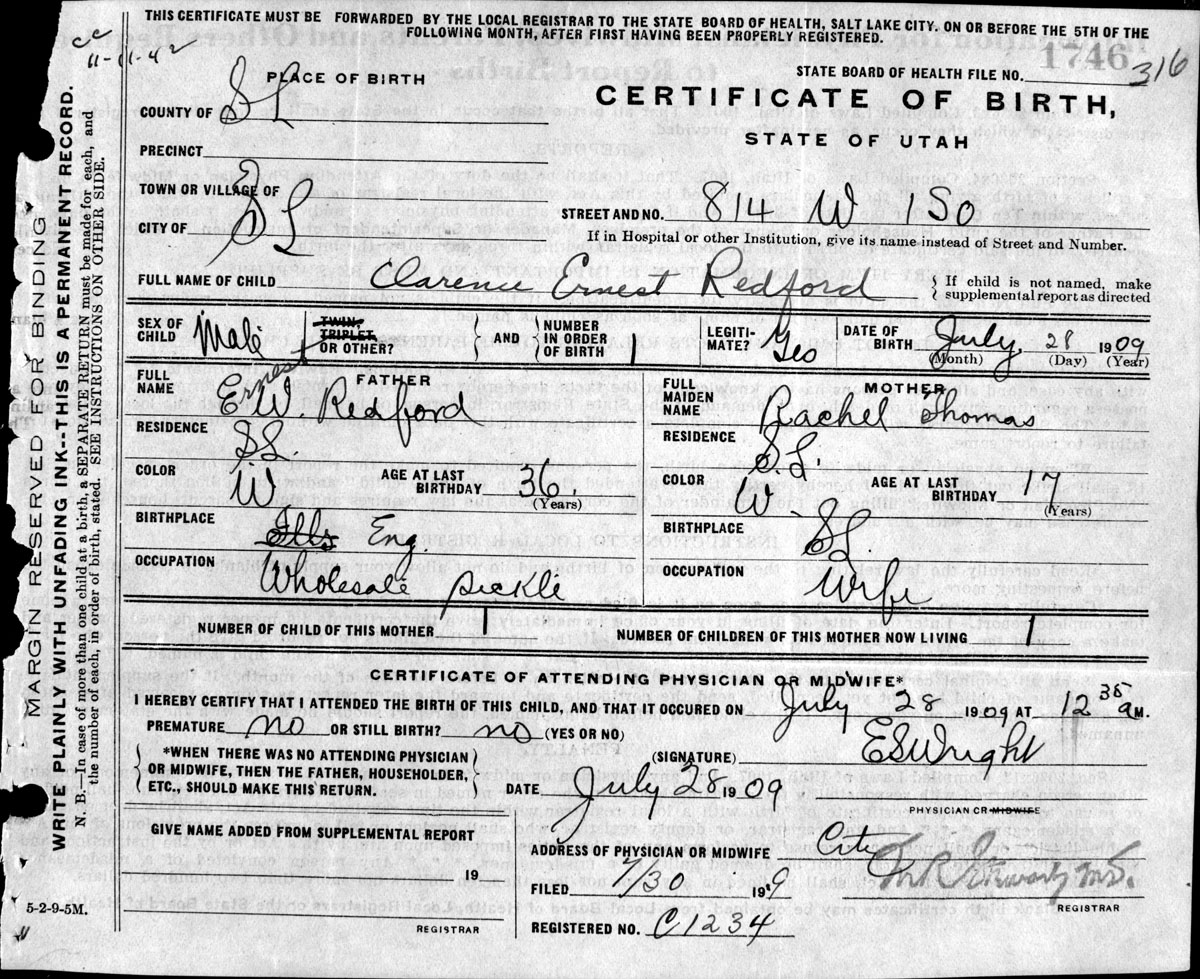 THIS CERTIFICATE MUST BE FORWARDED BY THE LOCAL REGISTRAR TO THE STATE BOARD OF HEALTH, SALT LAKE CITY, ON OR BEFORE THE 5TH OF THE
FOLLOWING MONTH, AFTER FIRST HAVING BEEN PROPERLY REGISTERED.
cc
11-11-42
1746
316
STATE BOARD OF HEALTH FILE NO.
PLACE OF BIRTH
CERTIFICATE OF BIRTH,
STATE OF UTAH
COUNTY OF SL
PRECINCT
TOWN OR VILLAGE OF
CITY OF SL
STREET AND NO. 814 W 1 SO
If in Hospital or other Institution, give its name instead of Street and Number.
FULL NAME OF CHILD Clarence Ernest Redford
If child is not named, make
supplemental report as directed
SEX OF CHILD Male
TWIN, TRIPLET OR OTHER?
AND
NUMBER IN ORDER OF BIRTH 1
LEGITIMATE? Yes
DATE OF BIRTH July, 28 1909
(Month) (Day) (Year)
FATHER
FULL NAME Ernest W. Redford
RESIDENCE SL.
COLOR W
AGE AT LAST BIRTHDAY 36.
(Years)
BIRTHPLACE Eng.
OCCUPATION Wholesale pickle
MOTHER
FULL MAIDEN NAME Rachel Thomas
RESIDENCE S.L.
COLOR W
AGE AT LAST BIRTHDAY 17
(Years)
BIRTHPLACE SL.
OCCUPATION Wife
NUMBER OF CHILD OF THIS MOTHER 1
NUMBER OF CHILDREN OF THIS MOTHER NOW LIVING 1
CERTIFICATE OF ATTENDING PHYSICIAN OR MIDWIFE*
I HEREBY CERTIFY THAT I ATTENDED THE BIRTH OF THIS CHILD, AND THAT IT OCCURED ON July 28 1909 AT 12 38 a M.
PREMATURE no OR STILL BIRTH? no (YES OR NO)
*WHEN THERE WAS NO ATTENDING PHYSICIAN
OR MIDWIFE, THEN THE FATHER, HOUSEHOLDER,
ETC., SHOULD MAKE THIS RETURN.
(SIGNATURE) ES Wright
DATE July 28 1909
PHYSICIAN OR MIDWIFE
GIVE NAME ADDED FROM SUPPLEMENTAL REPORT
19
REGISTRAR
ADDRESS OF PHYSICIAN OR MIDWIFE City
FILED 7/30 199
REGISTRAR
REGISTERED NO. C1234
5-2-9-5M.
MARGIN RESERVED FOR BINDING
WRITE PLAINLY WITH UNFADING INK--THIS IS A PERMANENT RECORD.
N. B.—In case of more than one child at a birth, a SEPARATE RETURN must be made for each, and
the number of each, in order of birth, stated. SEE INSTRUCTIONS ON OTHER SIDE.